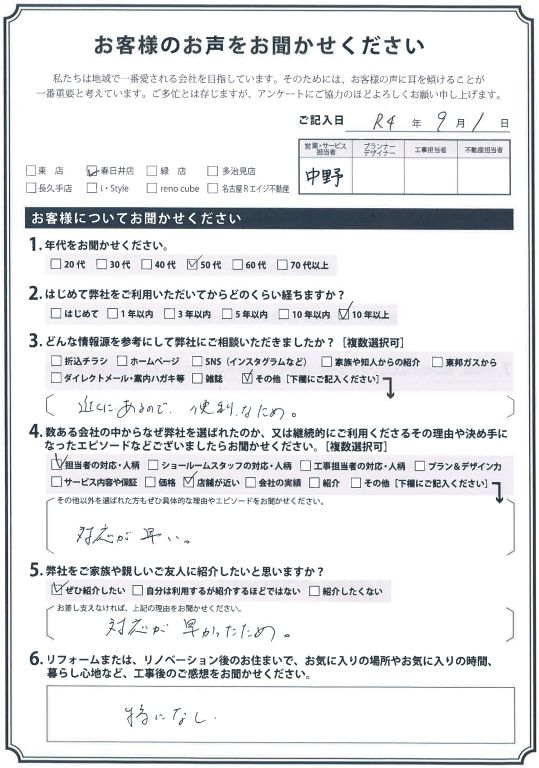 お客様のお声をお聞かせください
私たちは地域で一番愛される会社を目指しています。そのためには、お客様の声に耳を傾けることが
一番重要と考えています。ご多忙とは存じますが、アンケートにご協力のほどよろしくお願い申し上げます。
ご記入日 R4 年 9 月 1 日
営業・サービス担当者 プランナーデザイナー 工事担当者 不動産担当者
中野
□東 店 ☑春日井店 □緑 店 □多治見店
□長久手店 □i・Style □reno cube □名古屋Rエイジ不動産
お客様についてお聞かせください
1. 年代をお聞かせください。
□20代 □30代 □40代 ☑50代 □60代 □70代以上
2. はじめて弊社をご利用いただいてからどのくらい経ちますか？
□はじめて □1年以内 □3年以内 □5年以内 □10年以内 ☑10年以上
3. どんな情報源を参考にして弊社にご相談いただきましたか？［複数選択可］
□折込チラシ □ホームページ □SNS（インスタグラムなど） □家族や知人からの紹介 □東邦ガスから
□ダイレクトメール・案内ハガキ等 □雑誌 ☑その他［下欄にご記入ください］
近くにあるので、便利なため。
4. 数ある会社の中からなぜ弊社を選ばれたのか、又は継続的にご利用くださるその理由や決め手に
なったエピソードなどございましたらお聞かせください。［複数選択可］
☑担当者の対応・人柄 □ショールームスタッフの対応・人柄 □工事担当者の対応・人柄 □プラン＆デザイン力
□サービス内容や保証 □価格 ☑店舗が近い □会社の実績 □紹介 □その他［下欄にご記入ください］
その他以外を選ばれた方もぜひ具体的な理由やエピソードをお聞かせください。
対応が早い。
5. 弊社をご家族や親しいご友人に紹介したいと思いますか？
☑ぜひ紹介したい □自分は利用するが紹介するほどではない □紹介したくない
お差し支えなければ、上記の理由をお聞かせください。
対応が早かったため。
6. リフォームまたは、リノベーション後のお住まいで、お気に入りの場所やお気に入りの時間、
暮らし心地など、工事後のご感想をお聞かせください。
特になし.